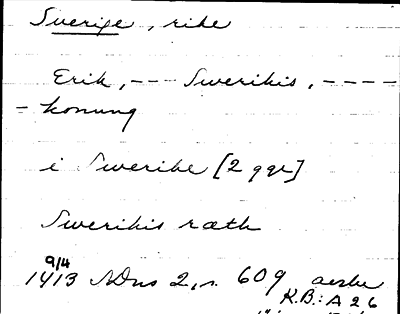 Swerige, rike
Erik, --- Swerikis, ----
- konung
i Swerike [2 ggr]
Swerikis rath
9/4
1413 NDns 2, s. 609 avskr
K.B.: A 26